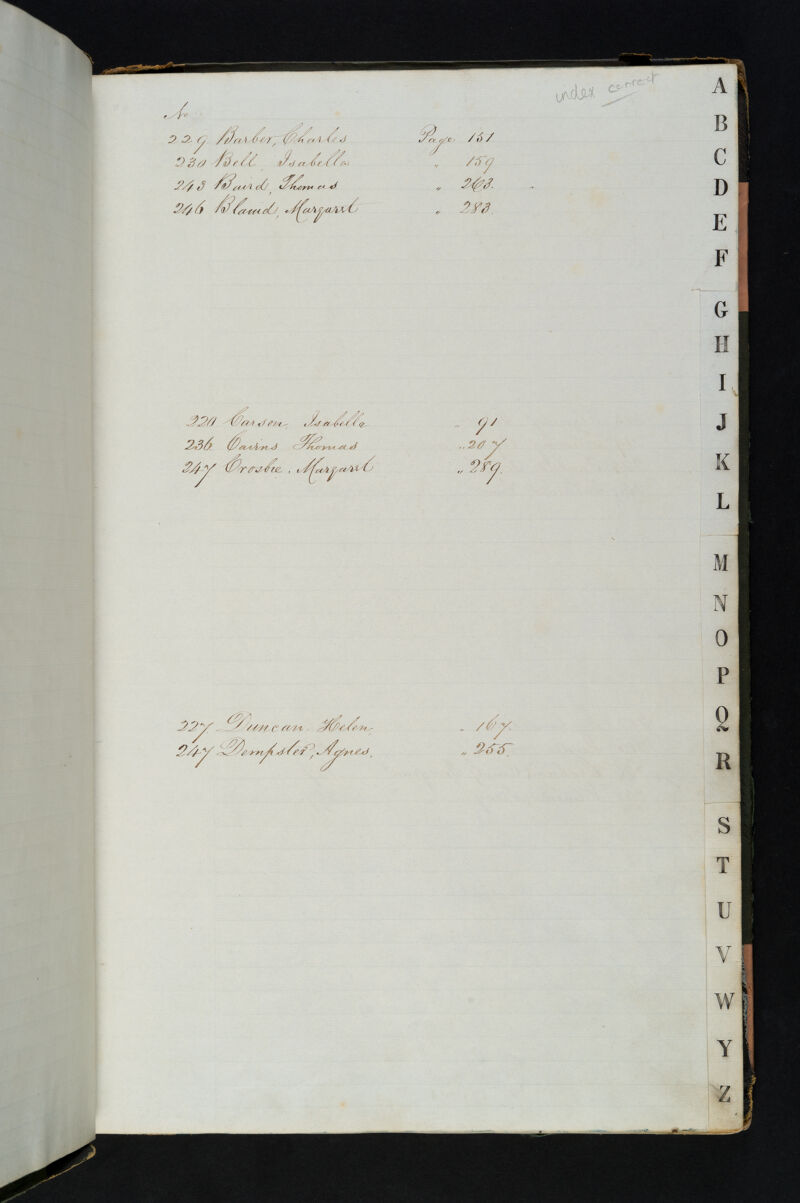 index correct
No
229 Barber, Charles Page 151
230 Bell Isabella " 159
243 Baird, Thomas " 263.
246 Bland, Margaret " 283.
220 Carson, Isabella " 91
236 Cairns Thomas " 207
247 Crosbie. Margaret " 289.
227 Duncan. Helen. " 167.
247 Dempster, Agnes. " 255.
A
B
C
D
E
F
G
H
I
J
K
L
M
N
O
P
Q
R
S
T
U
V
W
Y
Z